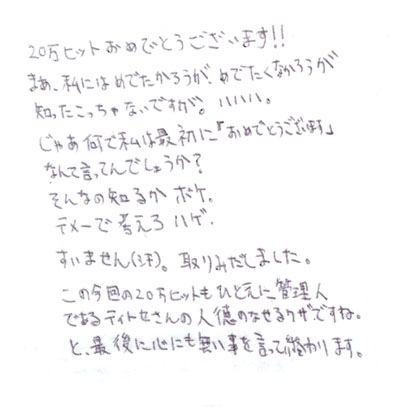 20万ヒットおめでとうございます!!
まぁ、私にはめでたかろうが、めでたくなかろうが
知ったこっちゃないですが。ハハハハ。
じゃあ何で私は最初に『おめでとうございます』
なんて言ってんでしょうか?
そんなの知るか ボケ。
テメーで考えろ ハゲ.
すいません(汗)。取りみだしました。
この今回の20万ヒットもひとえに管理人
であるティトセさんの人徳のなせるワザですね。
と、最後に心にも無い事を言って終わります。